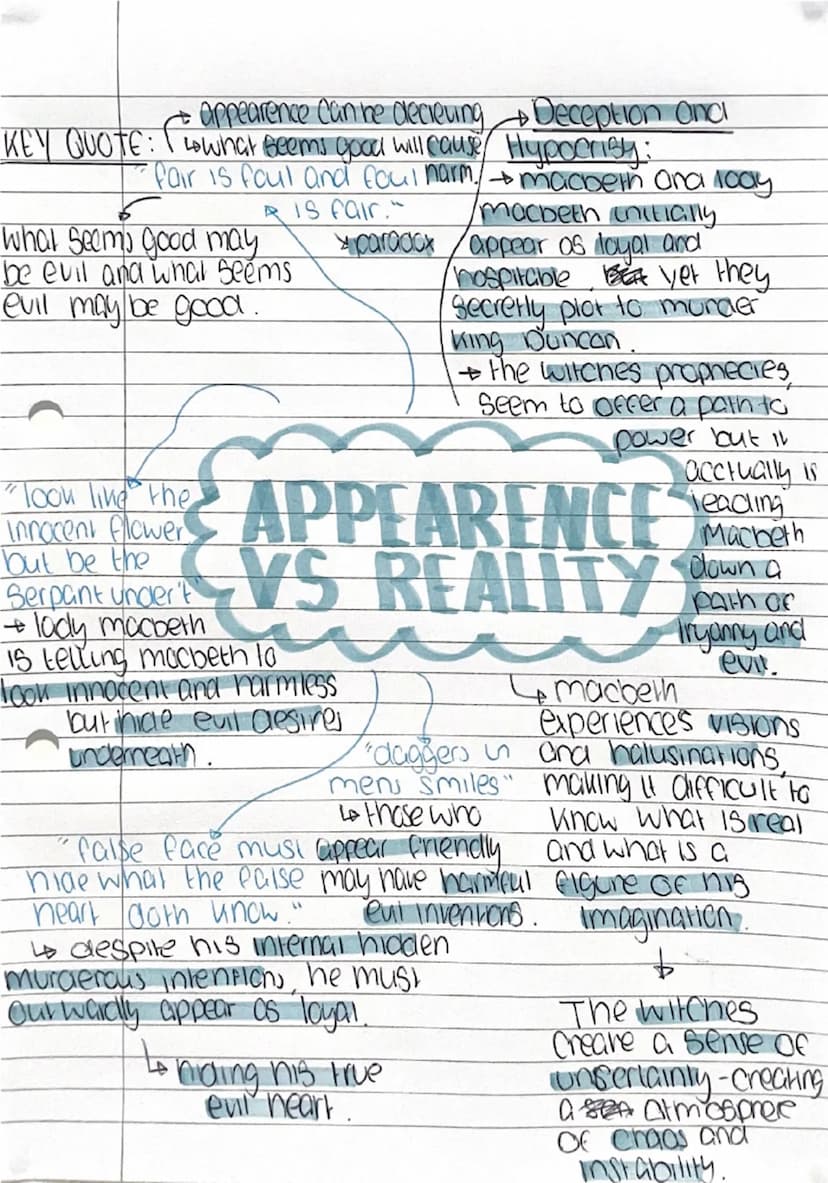 KEY QUOTE:
appearence can be decieving
↳what seems good will cause
harm.
"fair is foul and foul
is fair."
paradox
what seems good may
be evil and what seems
evil may be good.
Deception and
Hypocrisy:
→ macbeth and lady
macbeth initially
appear as loyal and
hospitable yet they
secretly plot to murder
king Duncan.
→ the witches prophecies,
seem to offer a path to
power but it
acctually is
leading
Macbeth
down a
path of
tryanny and
evil.
APPEARENCE
VS REALITY
"look like the
innocent flower
but be the
serpant under't"
→ lady macbeth
is telling macbeth to
look innocent and harmless
but hide evil desires
underneath.
"daggers in
mens smiles"
↳ those who
appear friendly
may have harmful
evil inventions.
"false face must
hide what the false
heart doth know."
↳ despite his internal hidden
murderous intentions, he must
outwardly appear as loyal.
↳ hiding his true
evil heart.
↳ macbeth
experiences visions
and halusinations,
making it difficult to
know what is real
and what is a
figure of his
imagination.
↓
The witches
create a sense of
unsertainty-creating
a atmosphere
of chaos and
instability.